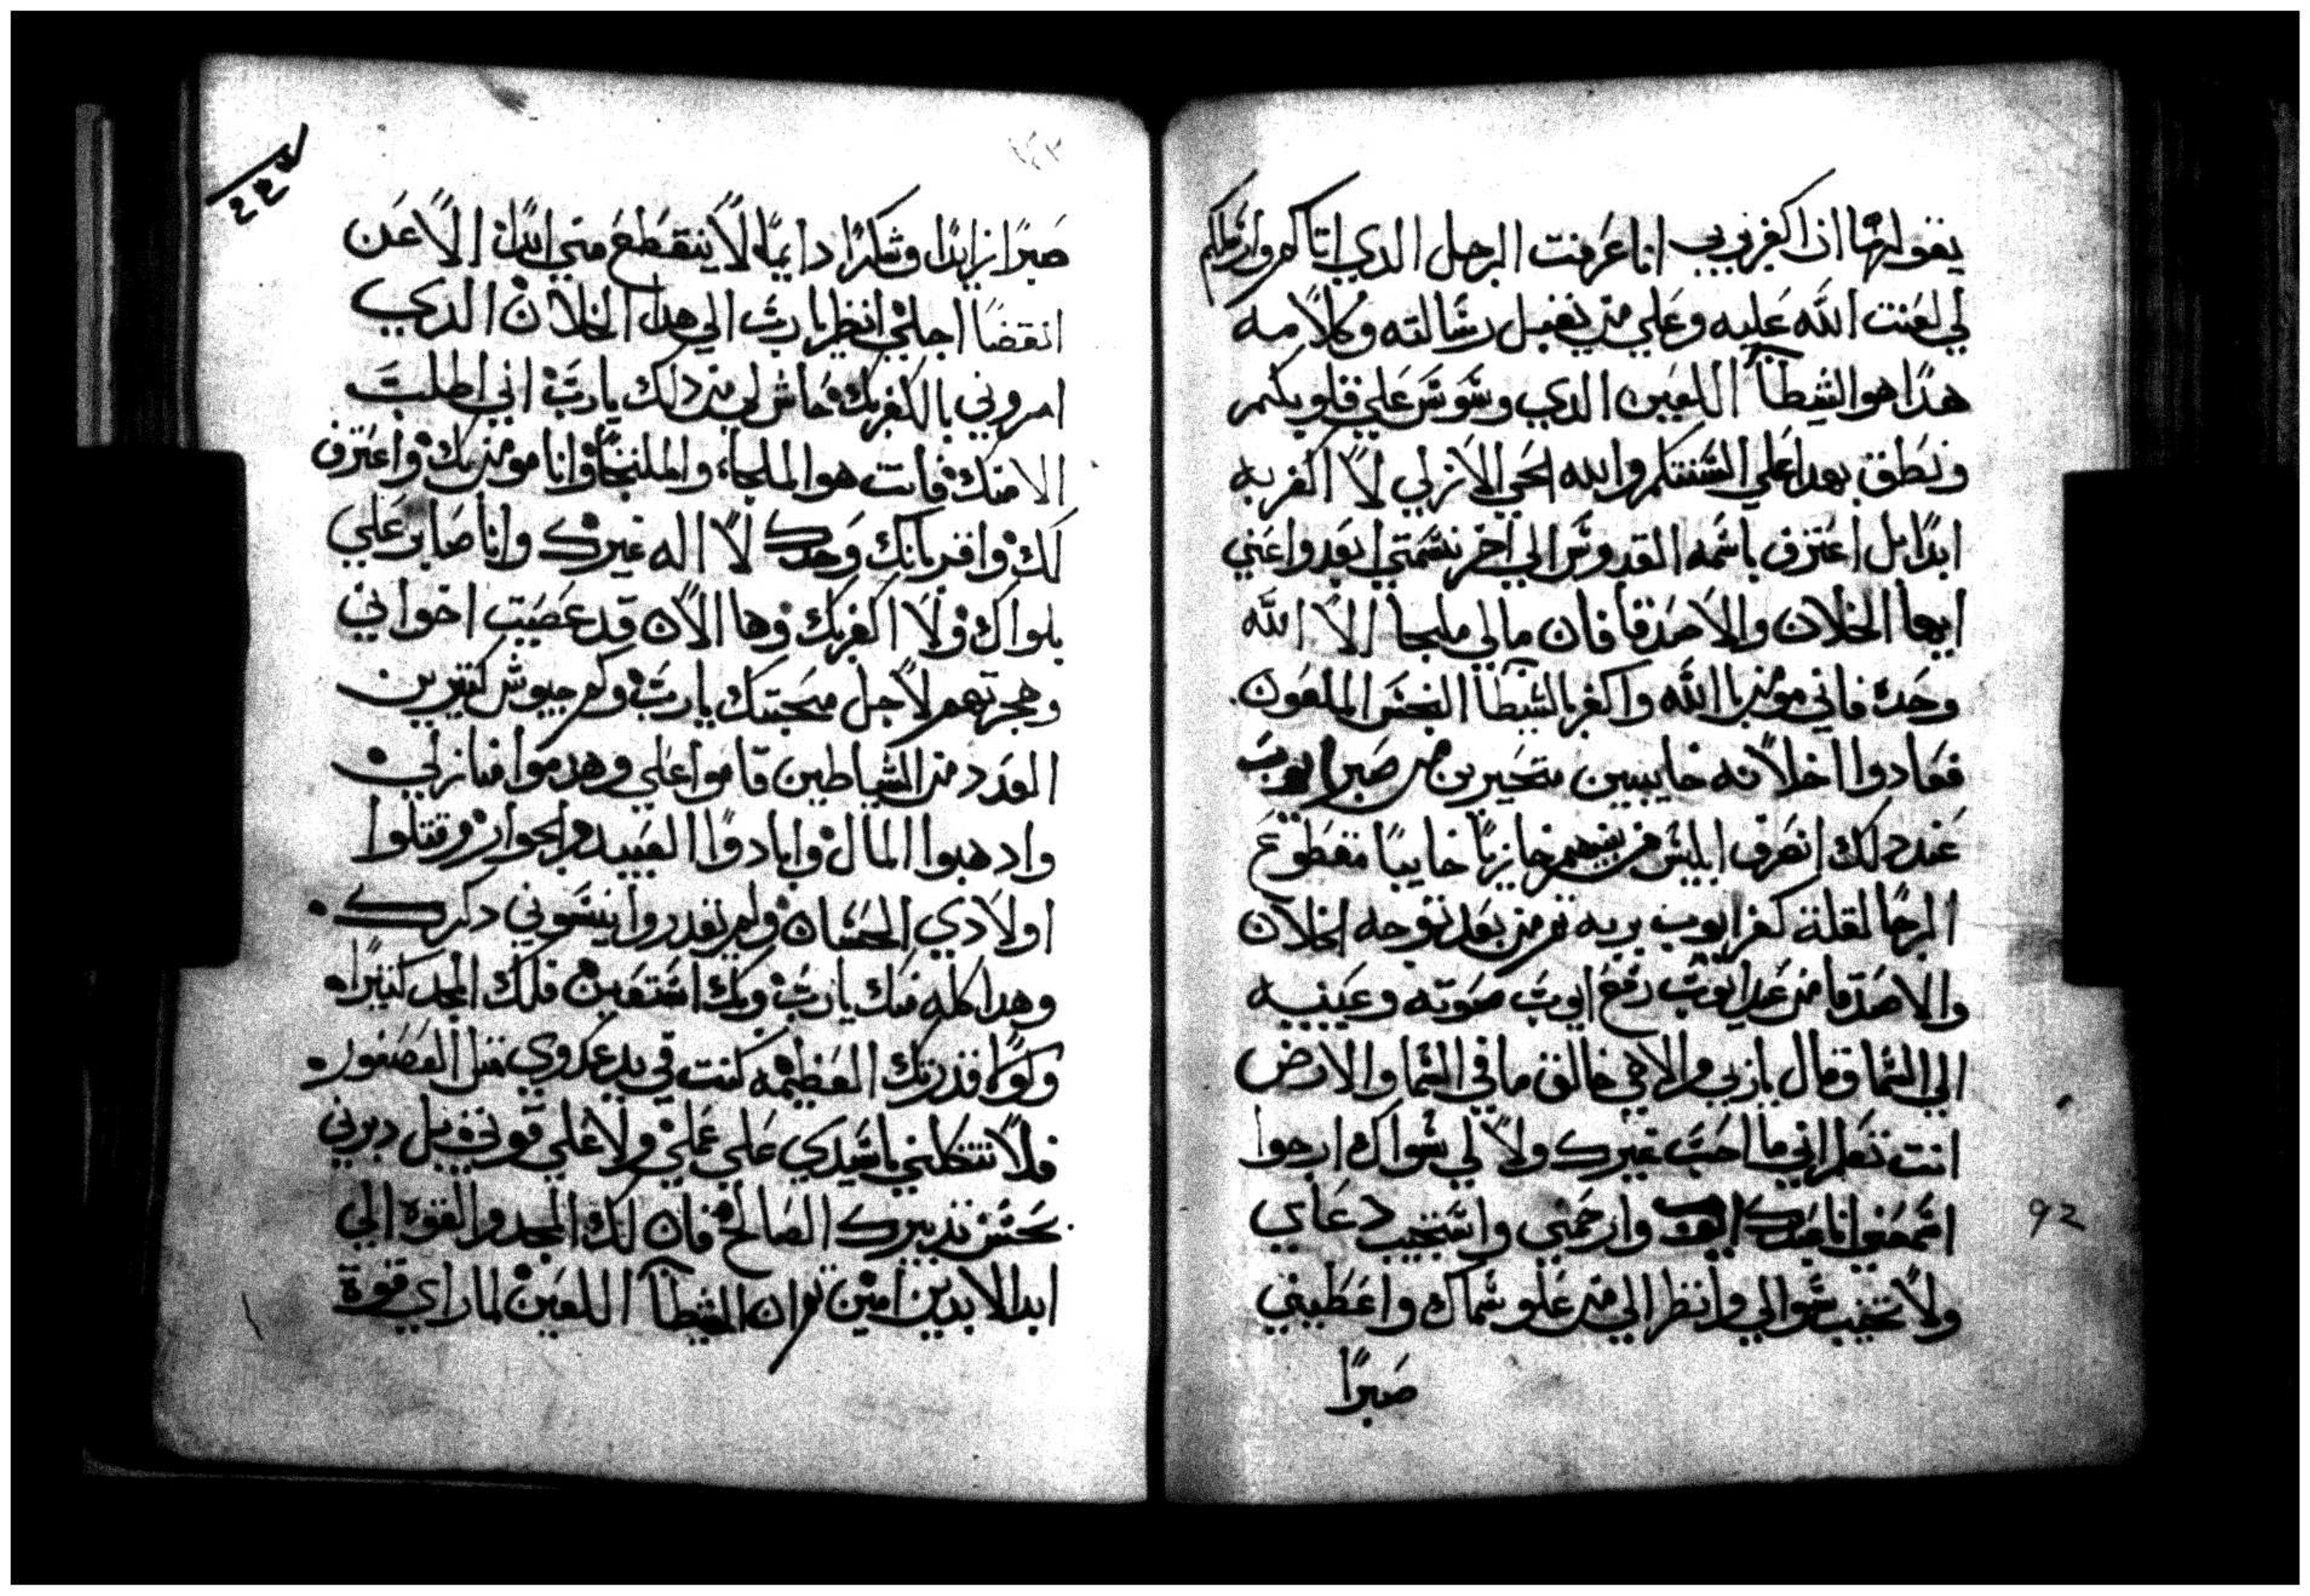 يقولها ان اكفر بربي انا عرفت الرجل الدي اتاكم وارسلكم
لي لعنت الله عليه وعلي من يقبل رسالته وكلامه
هدا هو الشيطان اللعين الدي وسوس علي قلوبكم
ونطق بهدا علي السنتكم والله الحي الازلي لا اكفر به
ابدًا بل اعترف باسمه القدوس الي اخر نسمتي ابعدوا عني
ايها الخلان والاصدقا فان مالي ملجا الا الله
وحده فاني مومن باالله واكفر بالشيطان النجس الملعون
فعادوا اخلانه خايبين متحيرين من صبر ايوب
عند دلك انصرف ابليس من بينهم خازيًا خايبًا مقطوع
الرجا لقلة كفر ايوب بربه تم من بعد توجه الخلان
والاصدقا من عند ايوب رفع ايوب صوته وعينيه
الي السما وقال ياربي والاهي خالق ما في السما والارض
انت تعلم اني ما احب غيرك ولا لي سواك ارجوا
اسمعني انا عبدك ايوب وارحمني واستجيب دعاي
ولا تخيب سوالي وانظر الي من علو سماك واعطيني
صبرًا
92
صبرًا زايدًا وشكرًا دايمًا لا ينقطع مني ابدًا الا عن
انقضا اجلي انظر يارب الي هدا الخلان الدي
امروني باالكفر بك حاش لي من دلك يارب اني اطلب
الا منك فانت هو الملجاء والملتجا وانا مومن بك واعترف
لك واقر بانك وحدك لا اله غيرك وانا صابر علي
بلواك ولا اكفر بك وها الان قد عصيت اخواني
وهجرتهم لاجل محبتك يارب وكم جيوش كتيرين
العدد من الشياطين قاموا علي وهدموا منازلي
وادهبوا المال وابادوا العبيد والجوار وقتلوا
اولادي الحسان ولم يقدروا ينسوني دكرك
وهدا كله منك يارب وبك استعين فلك المجد كتيرًا
ولولا قدرتك العظيمه كنت في يد عدوي متل العصفور
فلا تتكلني ياسيدي علي عملي ولا علي قوتي بل دبرني
بحسن تدبيرك الصالح فان لك المجد والقوه الي
ابد الابدين امين تم ان الشيطان اللعين لما راي قوة